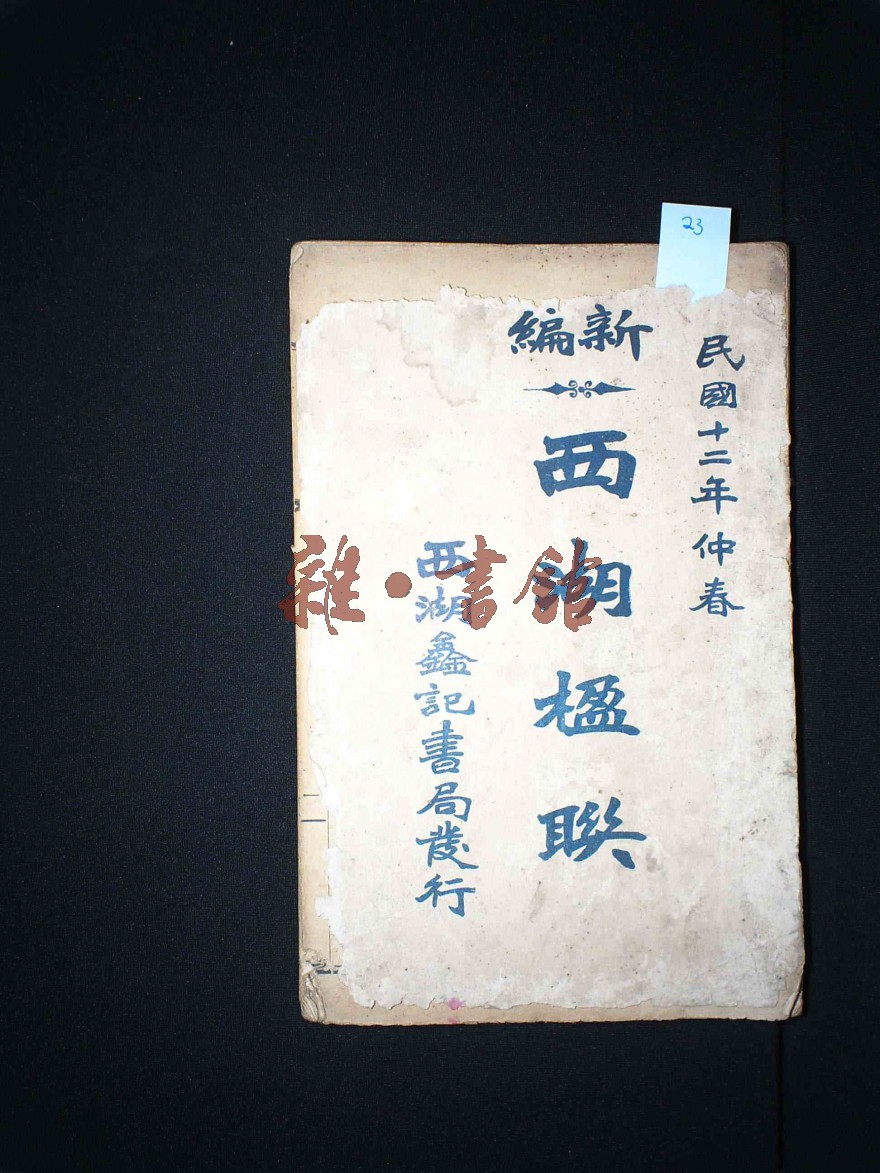 23
民國十二年仲春
新編
西湖楹聯
西湖鑫記書局發行
雜·書館